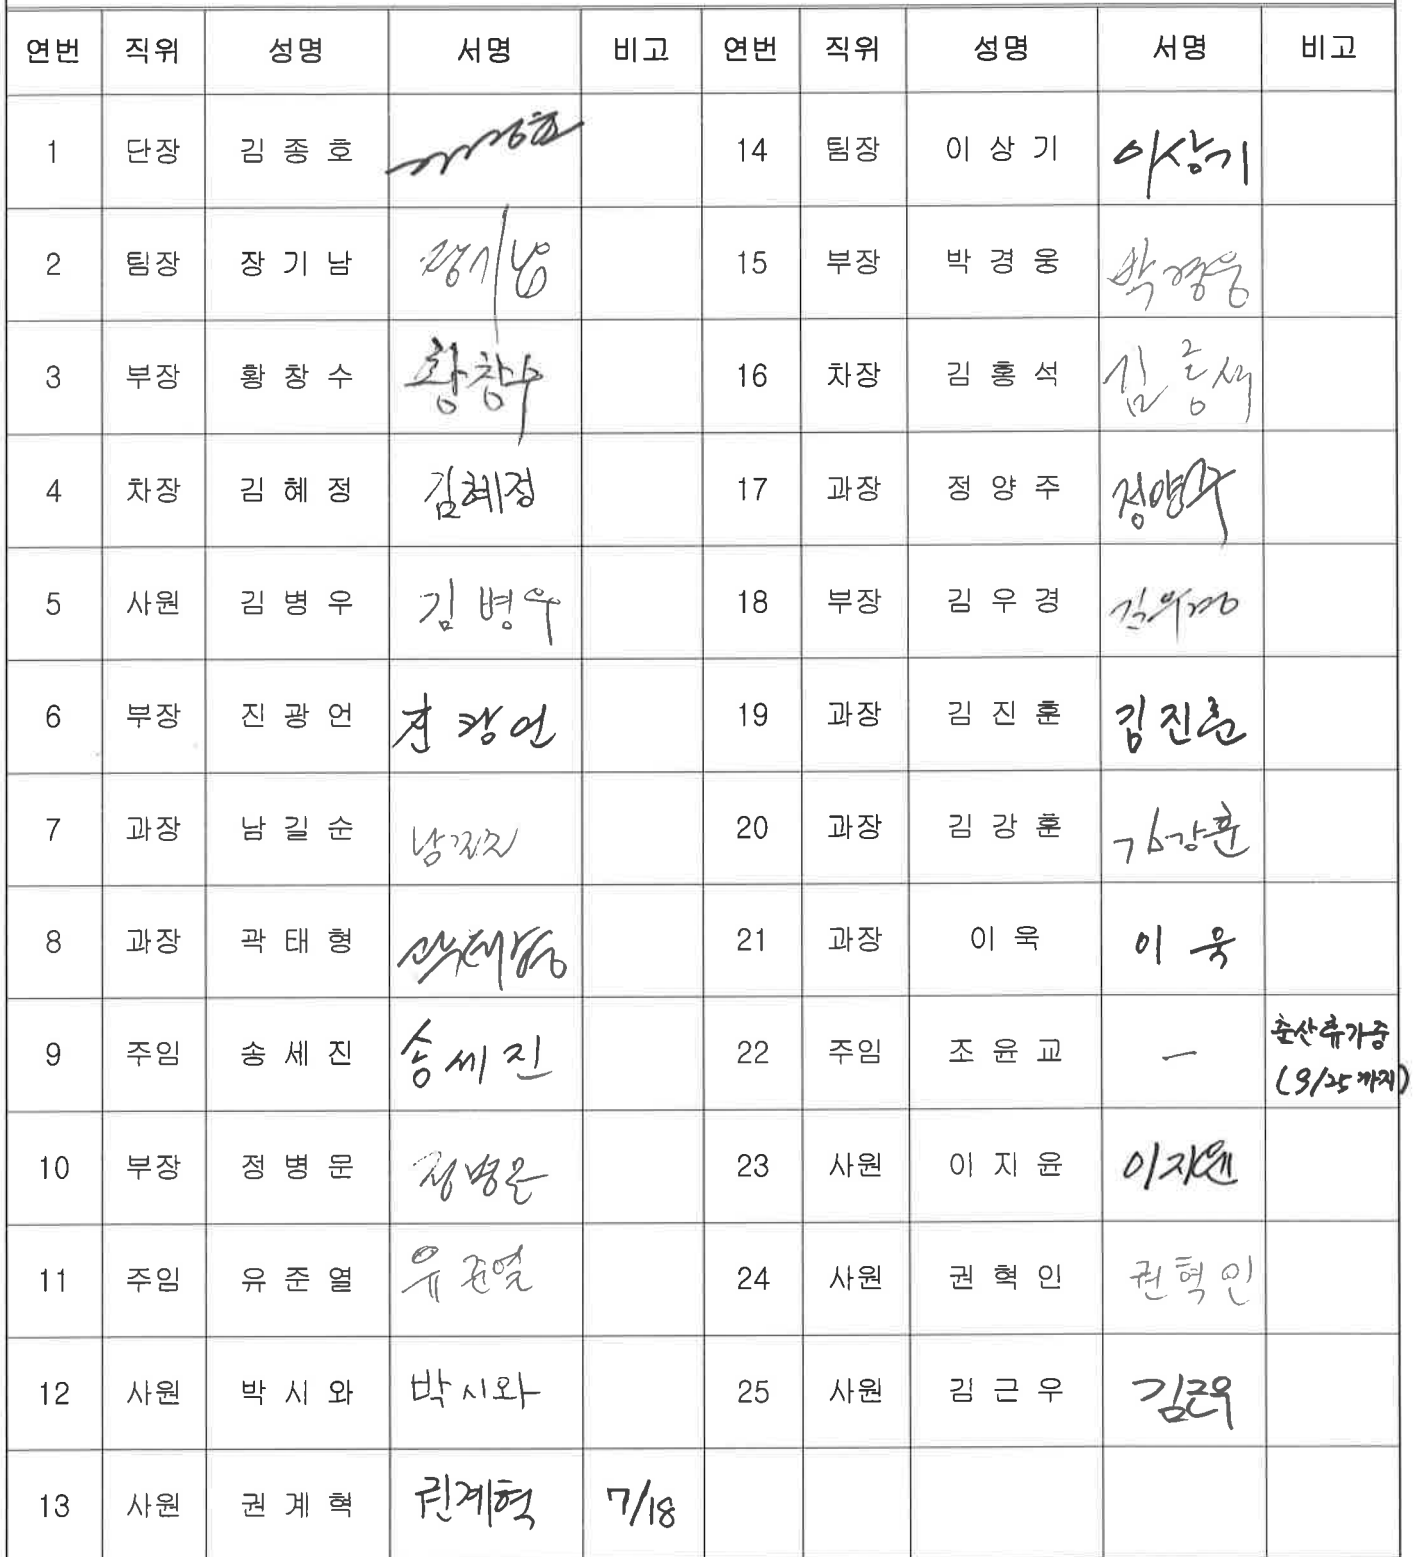 연번 직위 성명 서명 비고 연번 직위 성명 서명 비고
1 단장 김 종 호 14 팀장 이 상 기 이상기
2 팀장 장 기 남 장기남 15 부장 박 경 웅 박경웅
3 부장 황 창 수 황창수 16 차장 김 홍 석 김홍석
4 차장 김 혜 정 김혜정 17 과장 정 양 주 정양주
5 사원 김 병 우 김병우 18 부장 김 우 경 김우경
6 부장 진 광 언 진광언 19 과장 김 진 훈 김진훈
7 과장 남 길 순 남길순 20 과장 김 강 훈 김강훈
8 과장 곽 태 형 곽태형 21 과장 이 욱 이 욱
9 주임 송 세 진 송세진 22 주임 조 윤 교 — 출산휴가중
(9/25까지)
10 부장 정 병 문 정병문 23 사원 이 지 윤 이지윤
11 주임 유 준 열 유준열 24 사원 권 혁 인 권혁인
12 사원 박 시 와 박시와 25 사원 김 근 우 김근우
13 사원 권 계 혁 권계혁 7/18